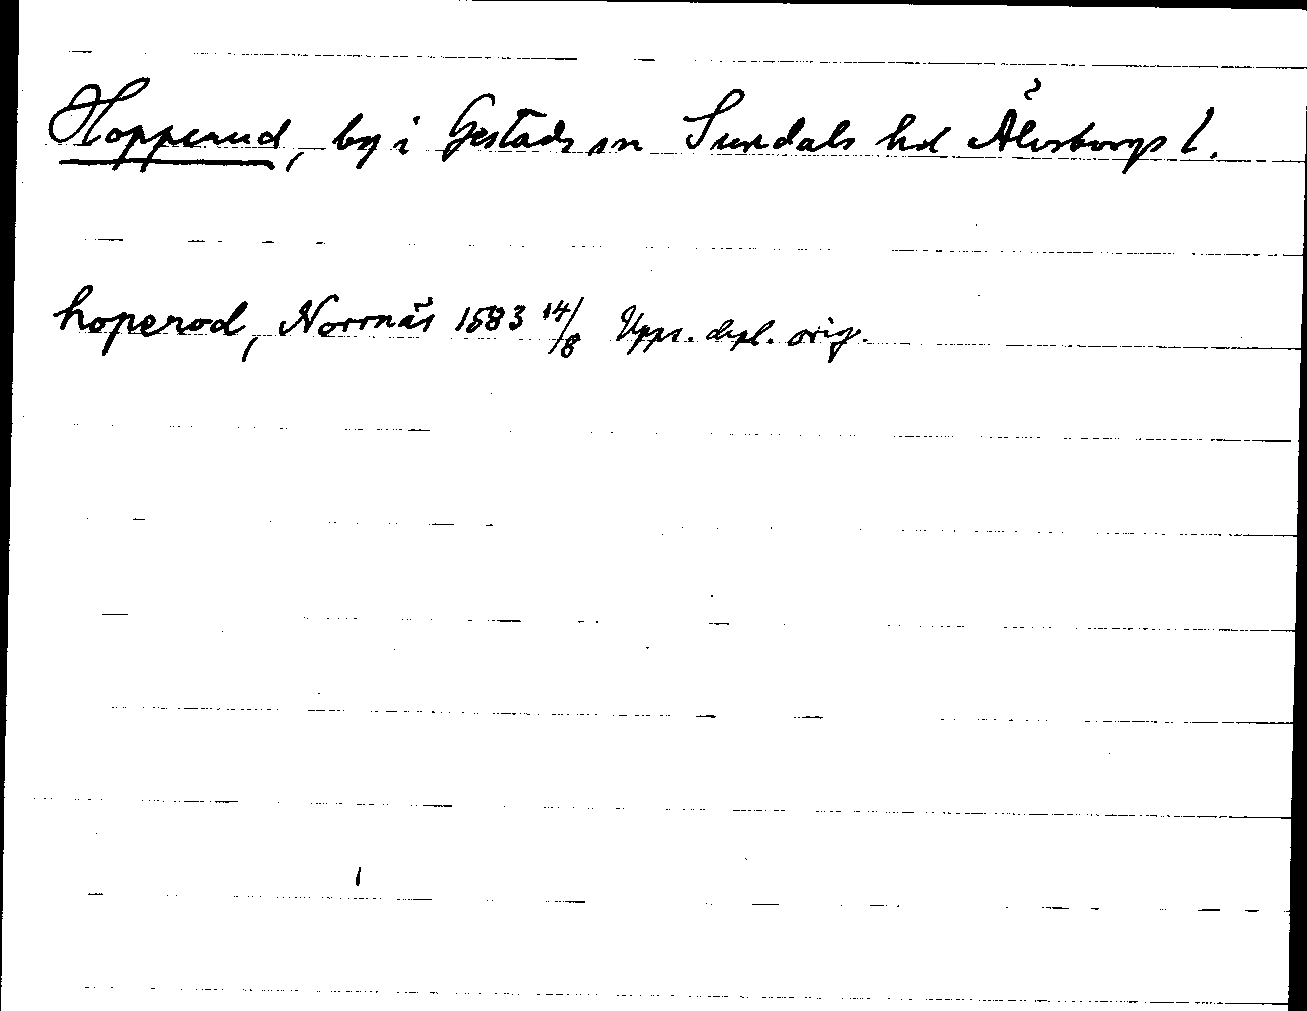 Hopperud, by i Gestads sn Sundals hd Älvsborgs l.
hoperod, Norrnäs 1583 14/8 Upps. dipl. orig.